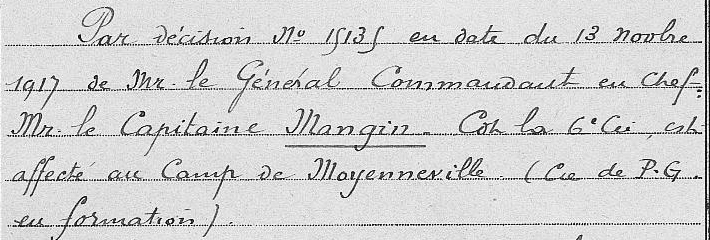 Par décision No 15135 en date du 13 novbre
1917 de Mr. le Général Commandant en Chef=
Mr. le Capitaine Mangin. Cdt la 6e Cie, est
affecté au Camp de Moyenneville. (Cie de P.G.
en formation).